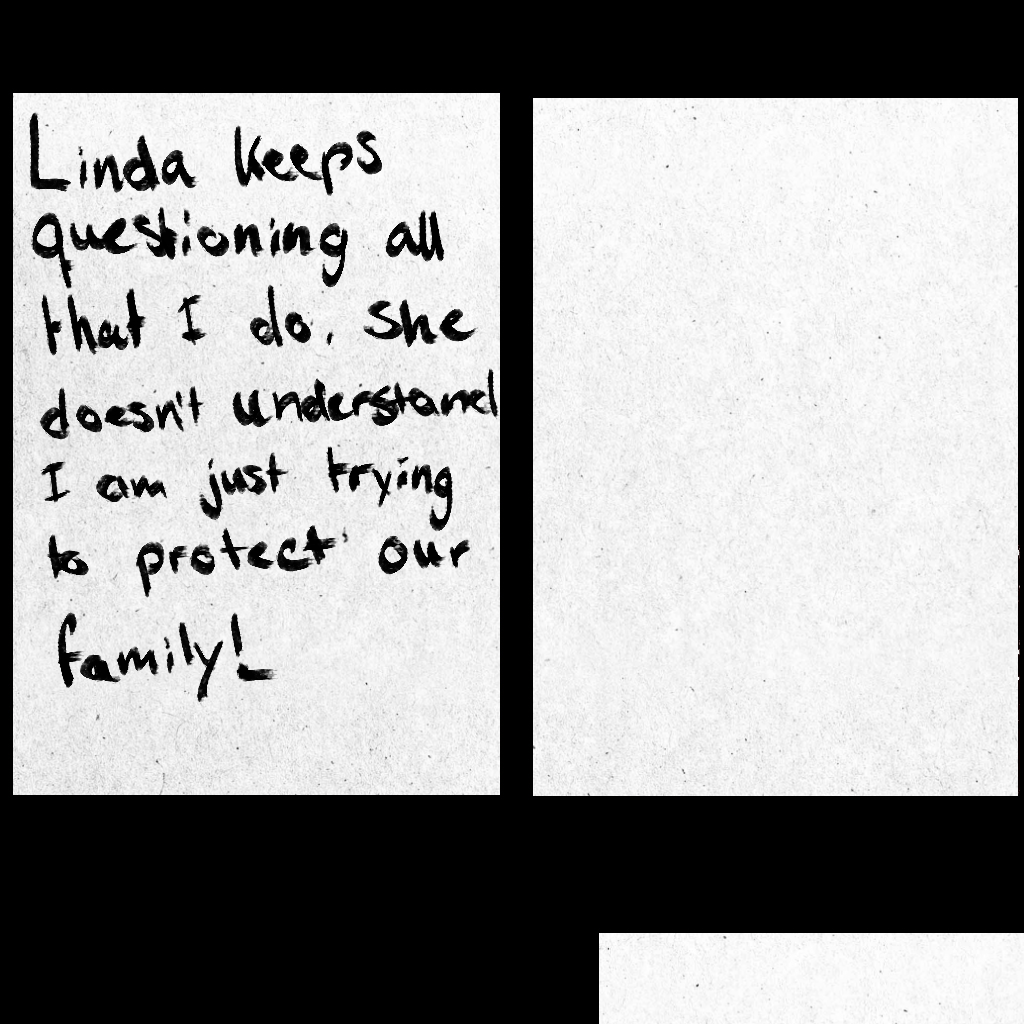 Linda keeps
questioning all
that I do. She
doesn't understand
I am just trying
to protect our
family!